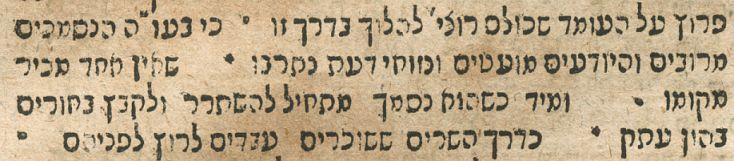 פרוץ על העומד שכולם רוצי' להלוך בדרך זו • כי בעו"ה הנסמכים
מרובים והיודעים מועטים ומזוחי דעת נתרבו • שאין אחד מכיר
מקומו • ומיד כשהוא נסמך מתחיל להשתרר ולקבץ בחורים
בהון עתק • כדרך השרים ששוכרים עבדים לרוץ לפניהם •